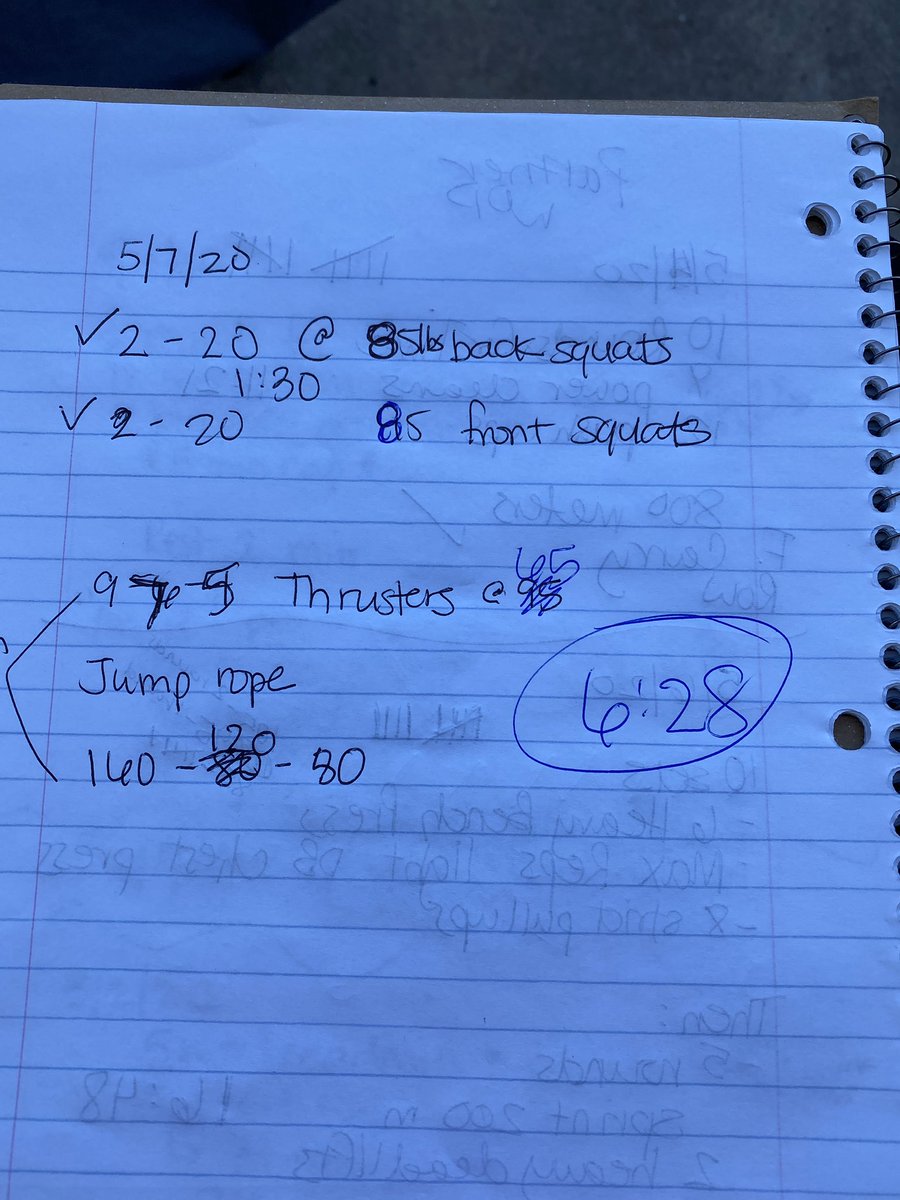 5/7/20
✓ 2 - 20 @ 85lbs back squats
1:30
✓ 2 - 20 85 front squats
9 - - 5 Thrusters @ 65
Jump rope
160 - 120 - 80
6:28